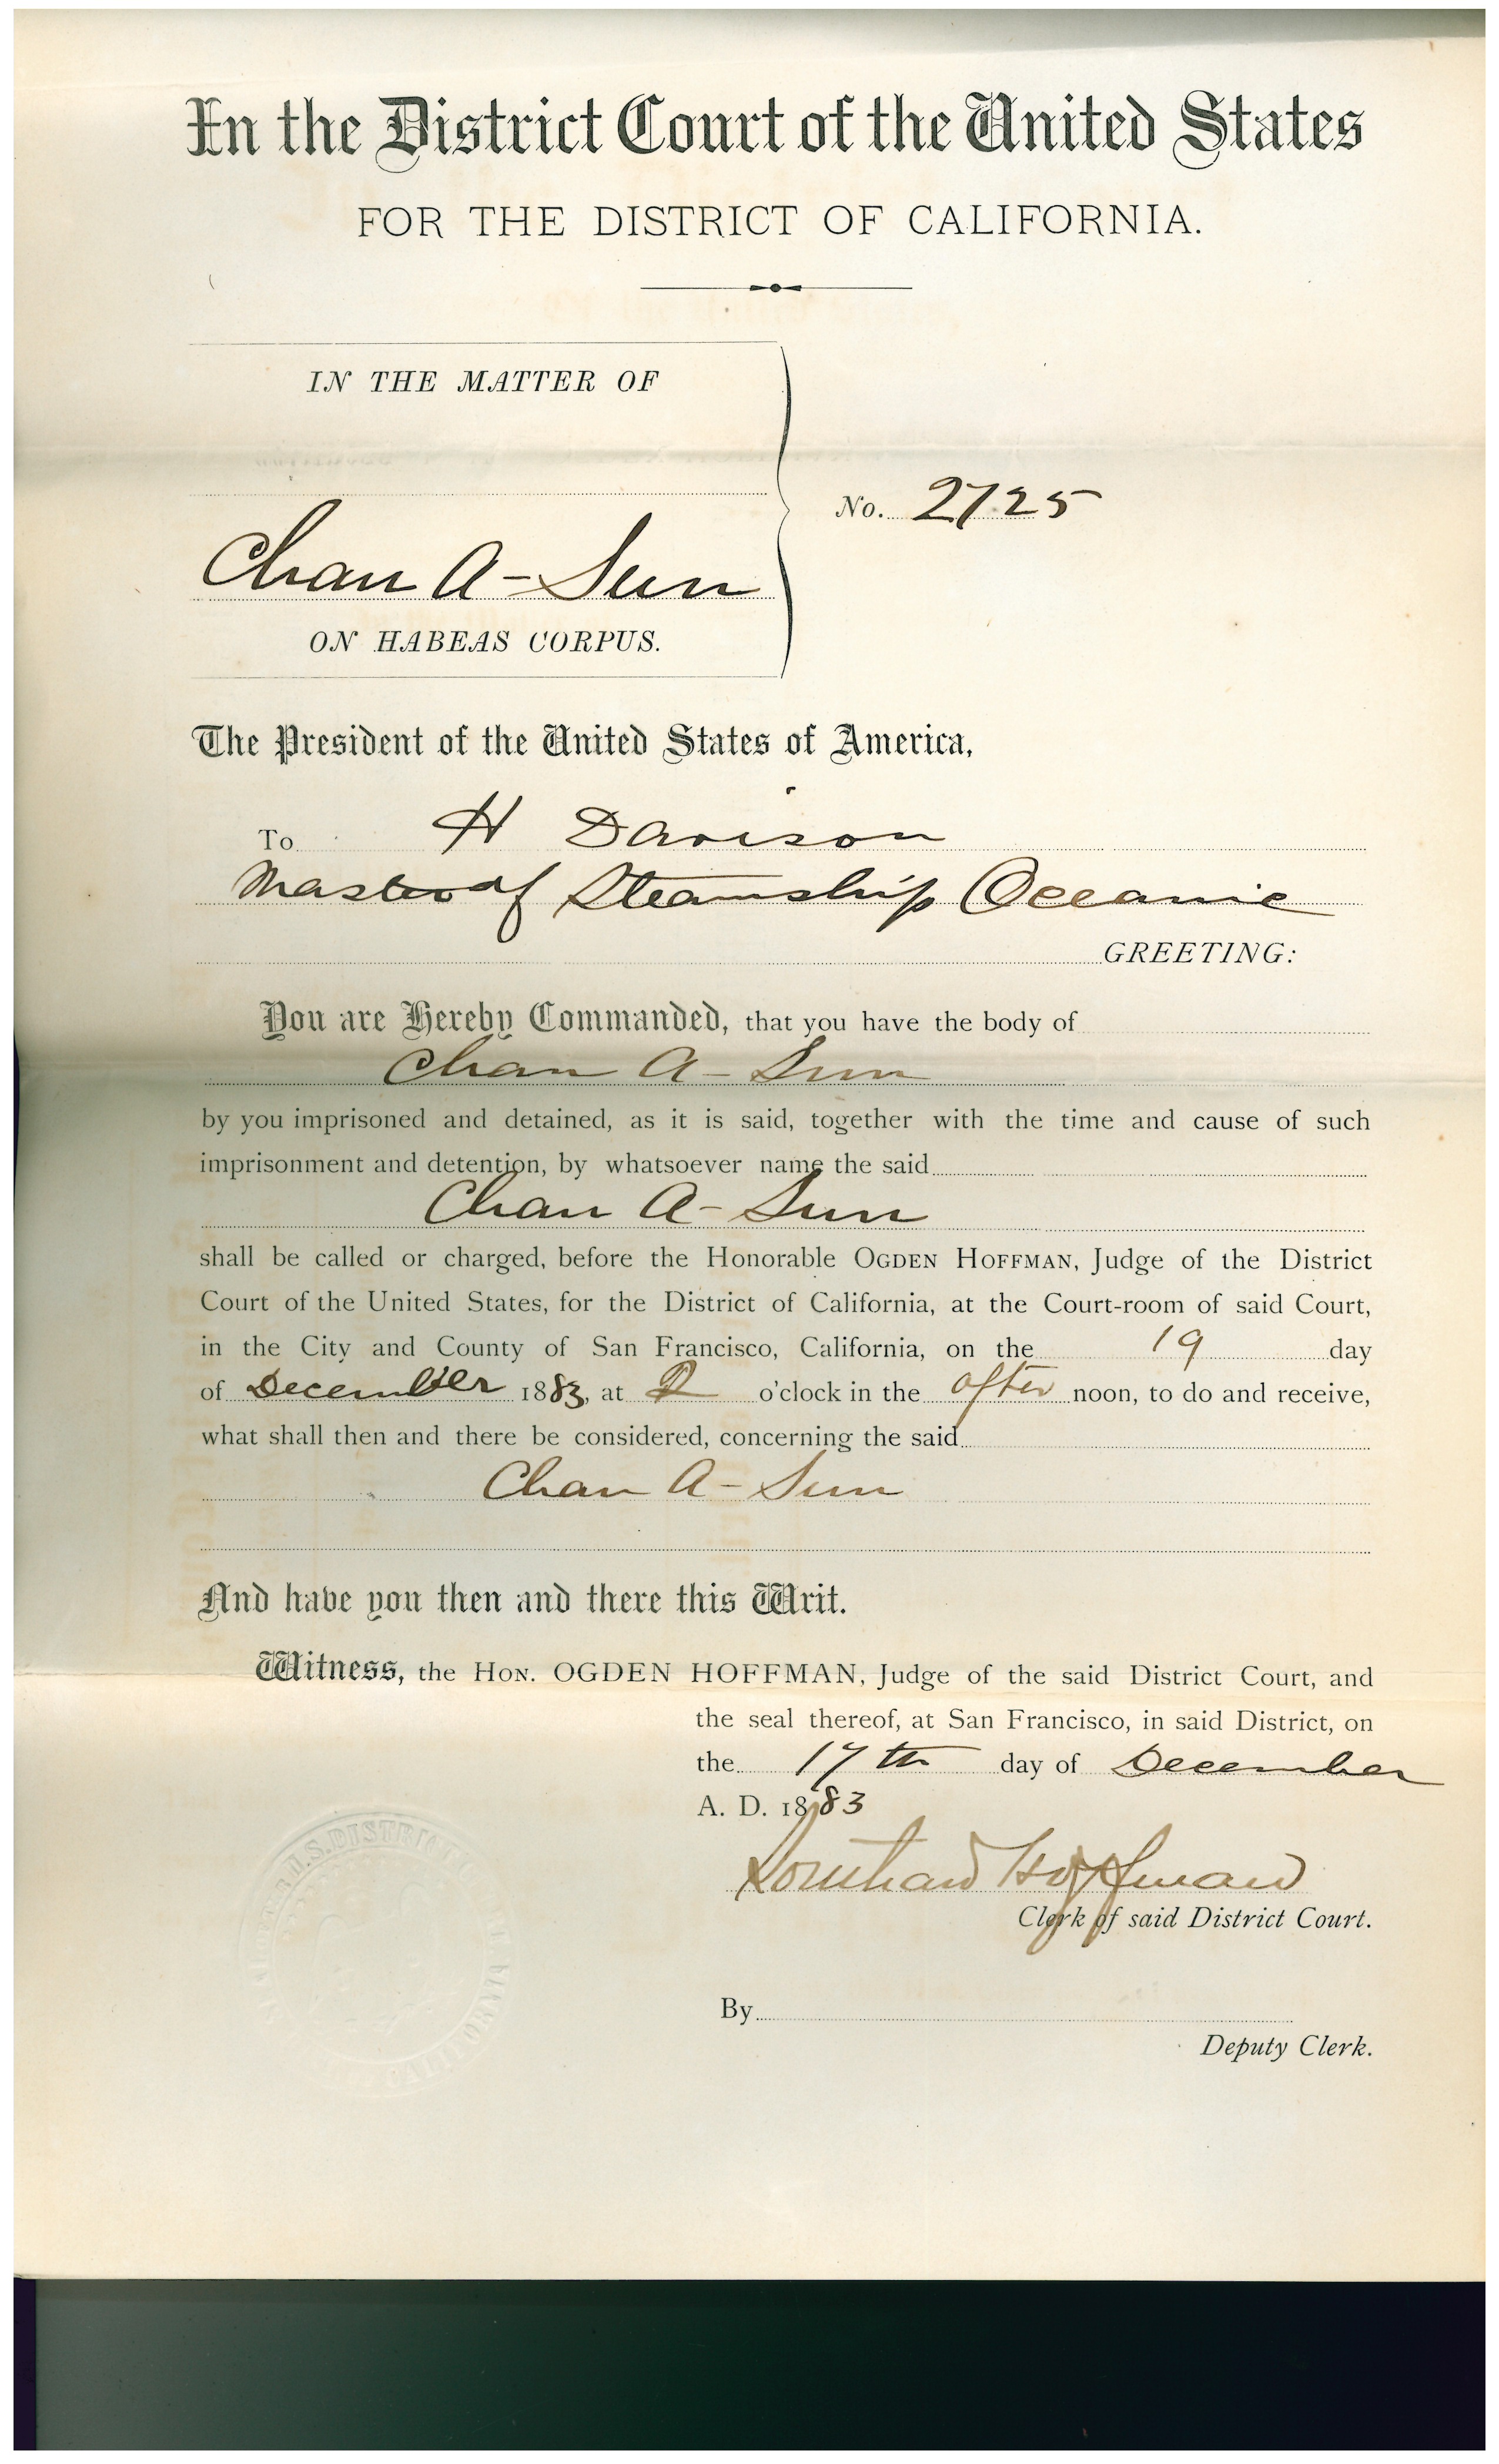 In the District Court of the United States
FOR THE DISTRICT OF CALIFORNIA.
IN THE MATTER OF
No. 2725
Chan A-Sun
ON HABEAS CORPUS.
The President of the United States of America,
To H Davison
Master of Steamship Oceanic
GREETING:
You are Hereby Commanded, that you have the body of
Chan A-Sun
by you imprisoned and detained, as it is said, together with the time and cause of such
imprisonment and detention, by whatsoever name the said
Chan A-Sun
shall be called or charged, before the Honorable OGDEN HOFFMAN, Judge of the District
Court of the United States, for the District of California, at the Court-room of said Court,
in the City and County of San Francisco, California, on the 19 day
of December 1883, at 2 o'clock in the after noon, to do and receive,
what shall then and there be considered, concerning the said
Chan A-Sun
And have you then and there this Writ.
Witness, the HON. OGDEN HOFFMAN, Judge of the said District Court, and
the seal thereof, at San Francisco, in said District, on
the 17th day of December
A. D. 1883
Hoffman
Clerk of said District Court.
By
Deputy Clerk.
U.S. DISTRICT